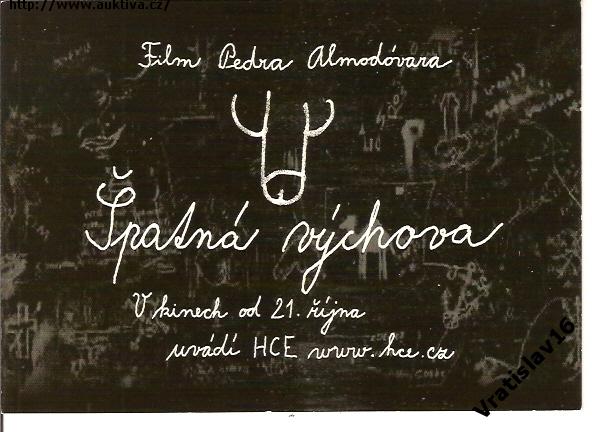 http://www.auktiva.cz/
Film Pedra Almodóvara
Špatná výchova
V kinech od 21. října
uvádí HCE www.hce.cz
Vratislav16